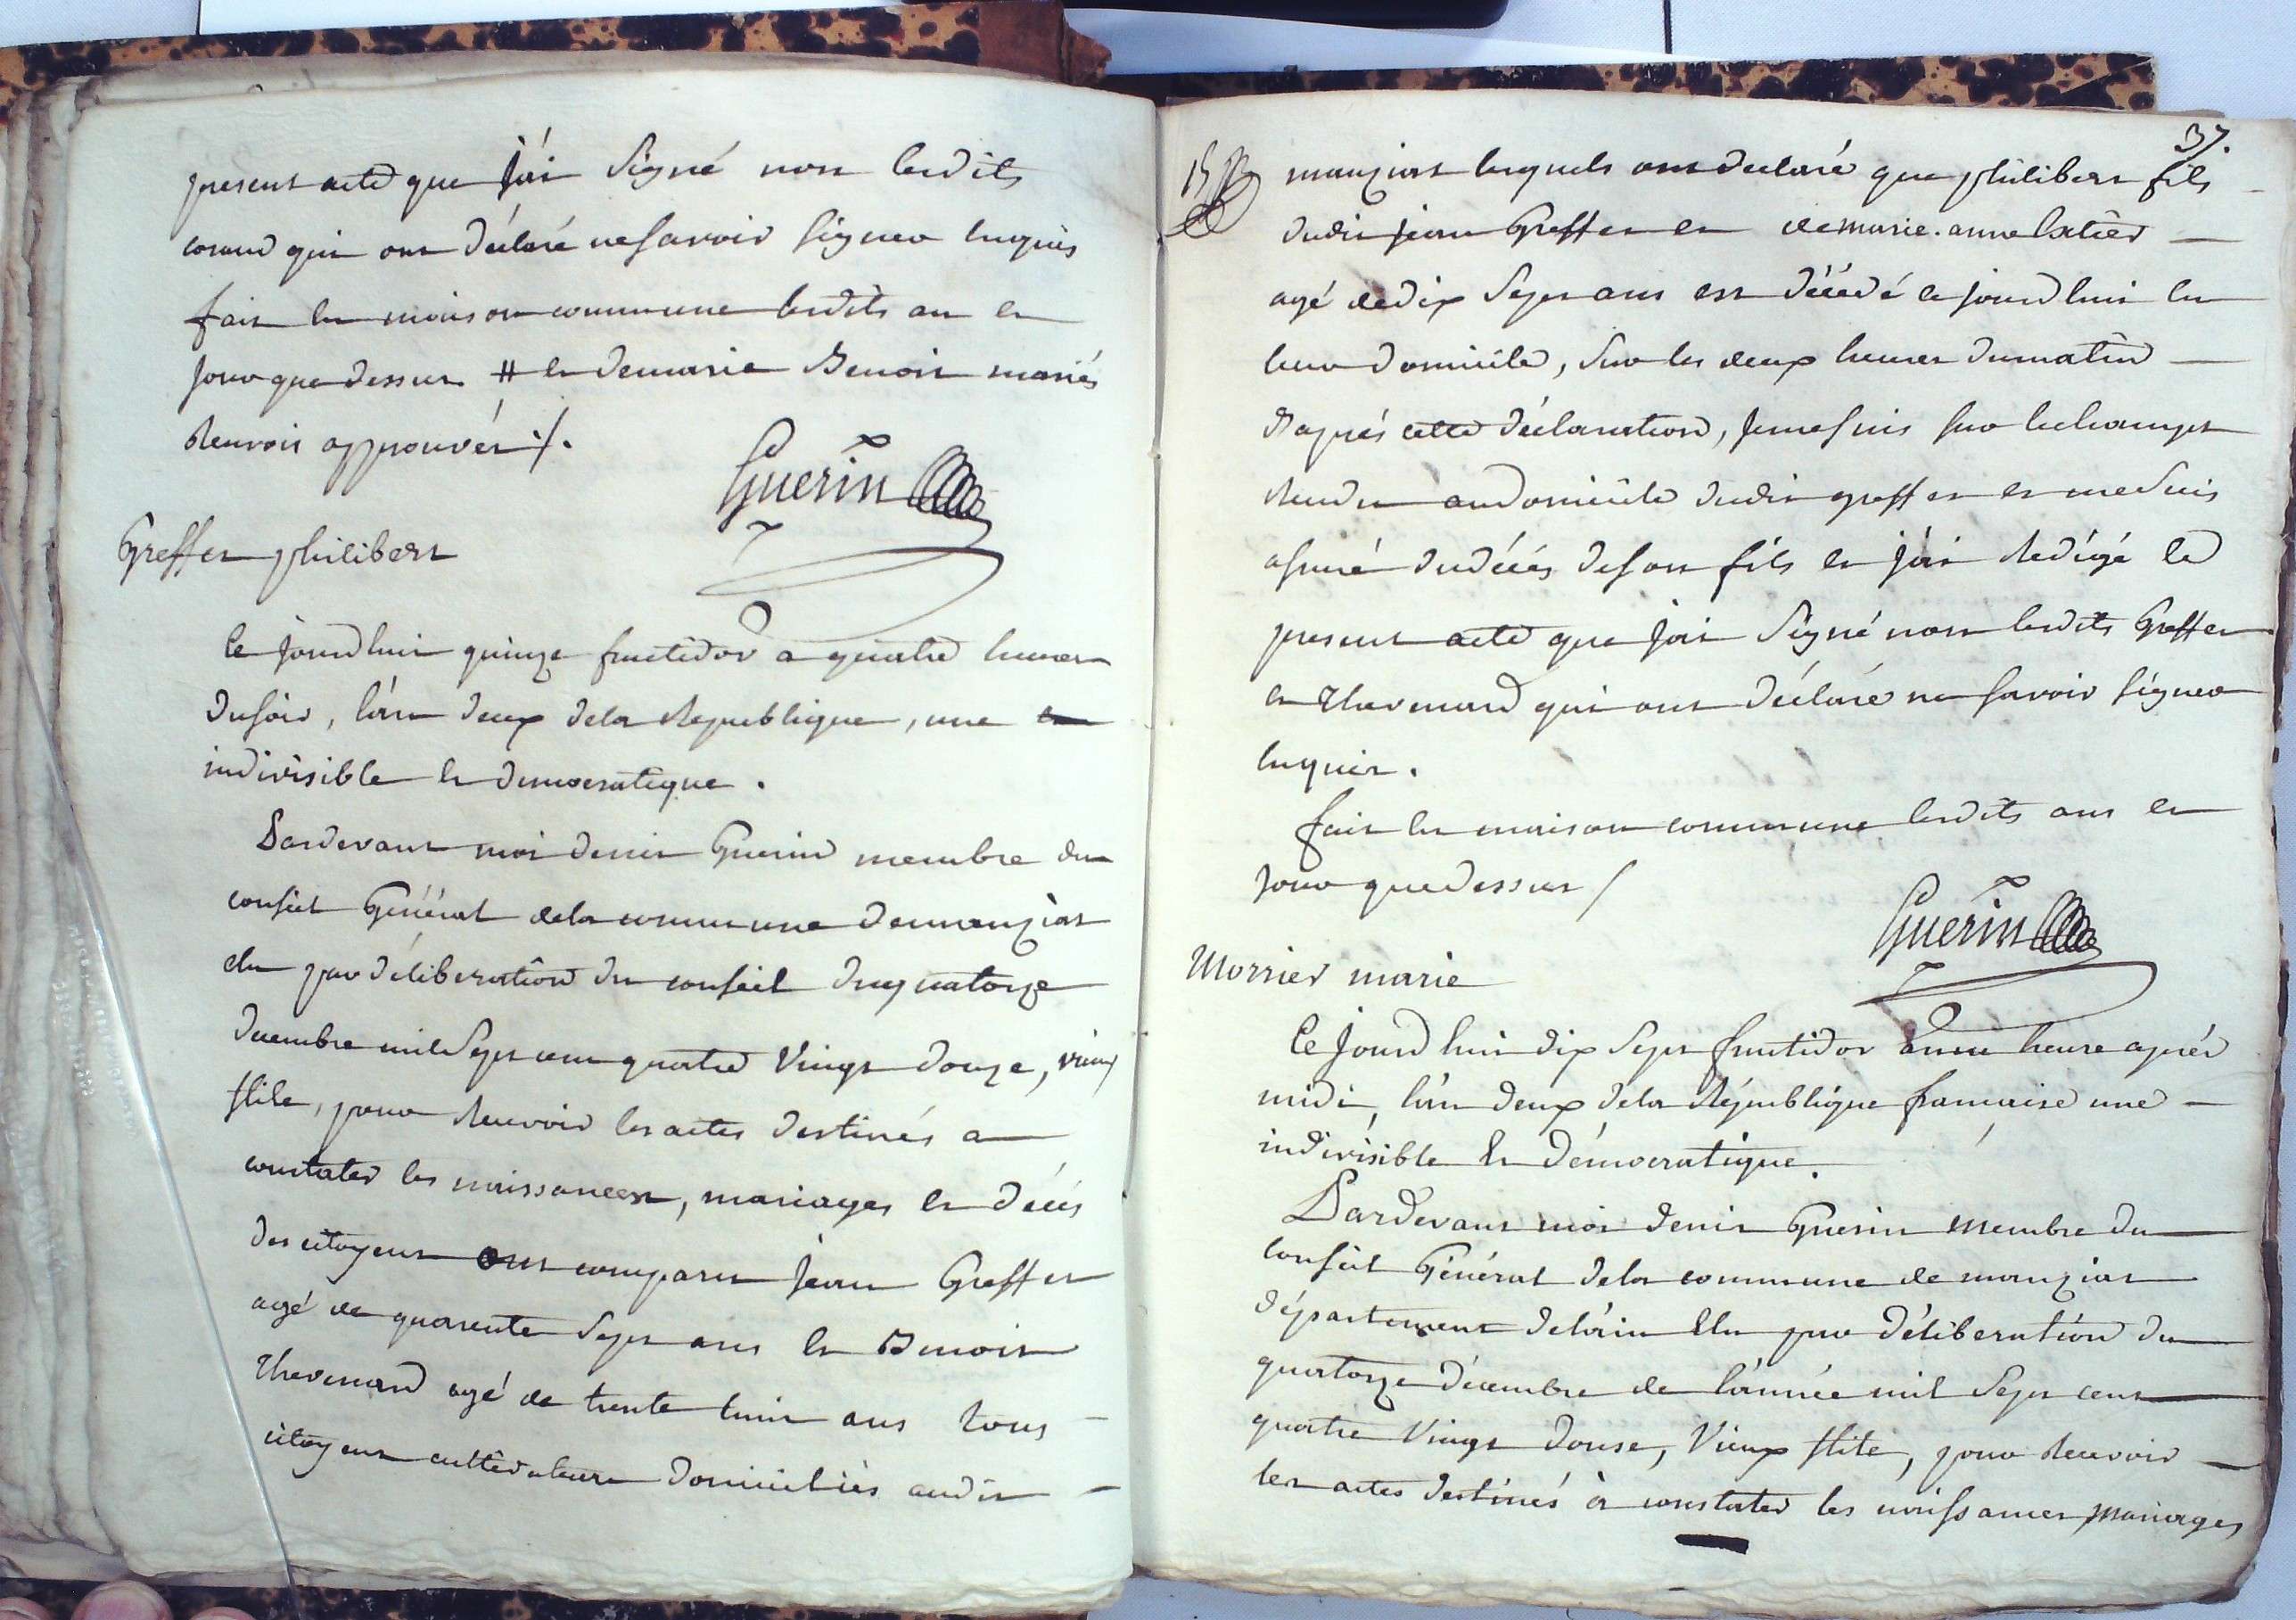 present acte que j'ai signé non lesdits
corand qui ont déclaré ne savoir signer enquis
fait en maison commune lesdits an et
jour que dessus # et de marie Benoit mariés
renvoir approuvér ·/.
Guerin
Greffet philibert
Ce jourdhui quinze fructidor a quatre heures
du soir, l'an deux de la Republique, une
indivisible et democratique.
Pardevant moi denis Guerin membre du
conseil Général de la commune de manziat
elu par déliberation du conseil du quatorze
decembre mil sept cent quatre vingt douze, vieux
stile, pour recevoir les actes destinés a
constater les naissances, mariages et décés
des citoyens ont comparu jean Greffet
agé de quarente sept ans et Benoit
thevenard agé de trente huit ans tous
citoyens cultivateurs domiciliés audit
37.
manziat lesquels ont declaré que philibert fils
dudit jean Greffet et de marie.anne
agé de dix sept ans est décédé ce jourdhui en
leur domicile, sur les deux heures du matin
d'aprés cette déclaration, je me suis sur le champt
rendu au domicile dudit greffet et me suis
assuré du décés de son fils et j'ai redigé le
present acte que j'ai signé non lesdits Greffet
et thevenard qui ont déclaré ne savoir signer
enquis.
fait en maison commune lesdits ans et
jour que dessus /
Guerin
Morrier marie
Ce jourd'hui dix sept fructidor a une heure aprés
midi, l'an deux de la République francaise une
indivisible et Démocratique.
Pardevant moi denis Guerin membre du
conseil Général de la commune de manziat
département de l'ain élu par déliberation du
quatorze décembre de l'année mil sept cent
quatre vingt douse, vieux stile, pour recevoir
les actes destinés à constater les naissances mariages